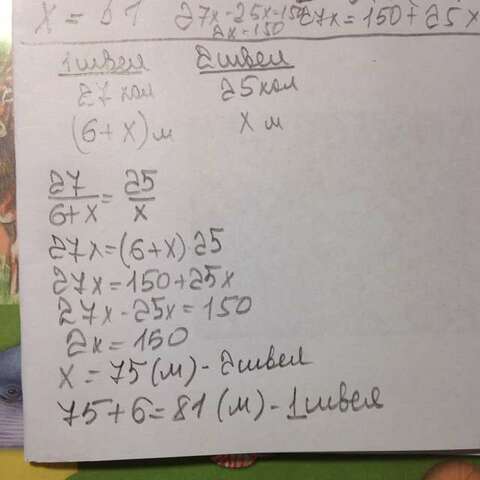 27x-25x=150 27x=150+25x
2x=150
1 швея 2 швея
27 хал 25 хал
(6+x) м x м
27/6+x = 25/x
27x=(6+x)25
27x=150+25x
27x-25x=150
2x=150
x=75(м)-2 швея
75+6=81(м)-1 швея